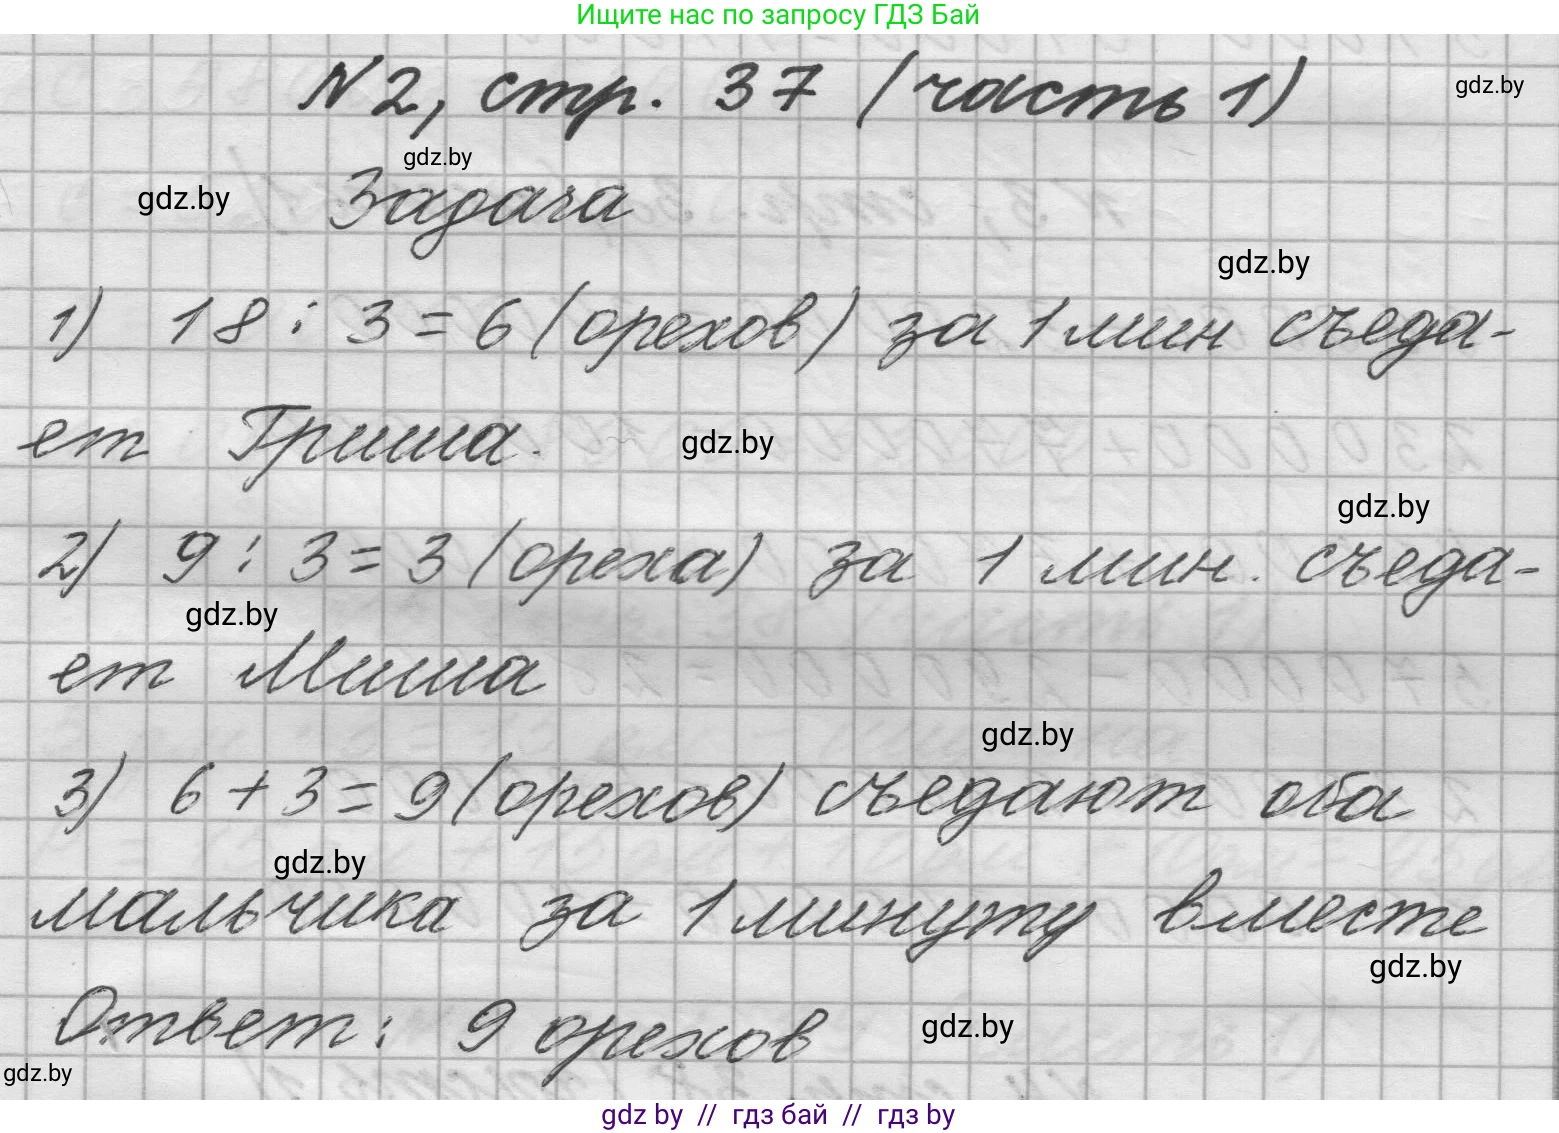 Ищите нас по запросу ГДЗ Бай
N2, стр. 37 (часть 1)
gdz.by
gdz.by
gdz.by
Задача
gdz.by
1) 18 : 3 = 6 (орехов) за 1 мин съеда-
ет Гриша.
gdz.by
gdz.by
2) 9 : 3 = 3 (ореха) за 1 мин. съеда-
gdz.by
ет Миша
gdz.by
3) 6 + 3 = 9 (орехов) съедают оба
gdz.by
мальчика за 1 минуту вместе
gdz.by
Ответ: 9 орехов
gdz.by
gdz.by
gdz by // гдз бай // гдз by